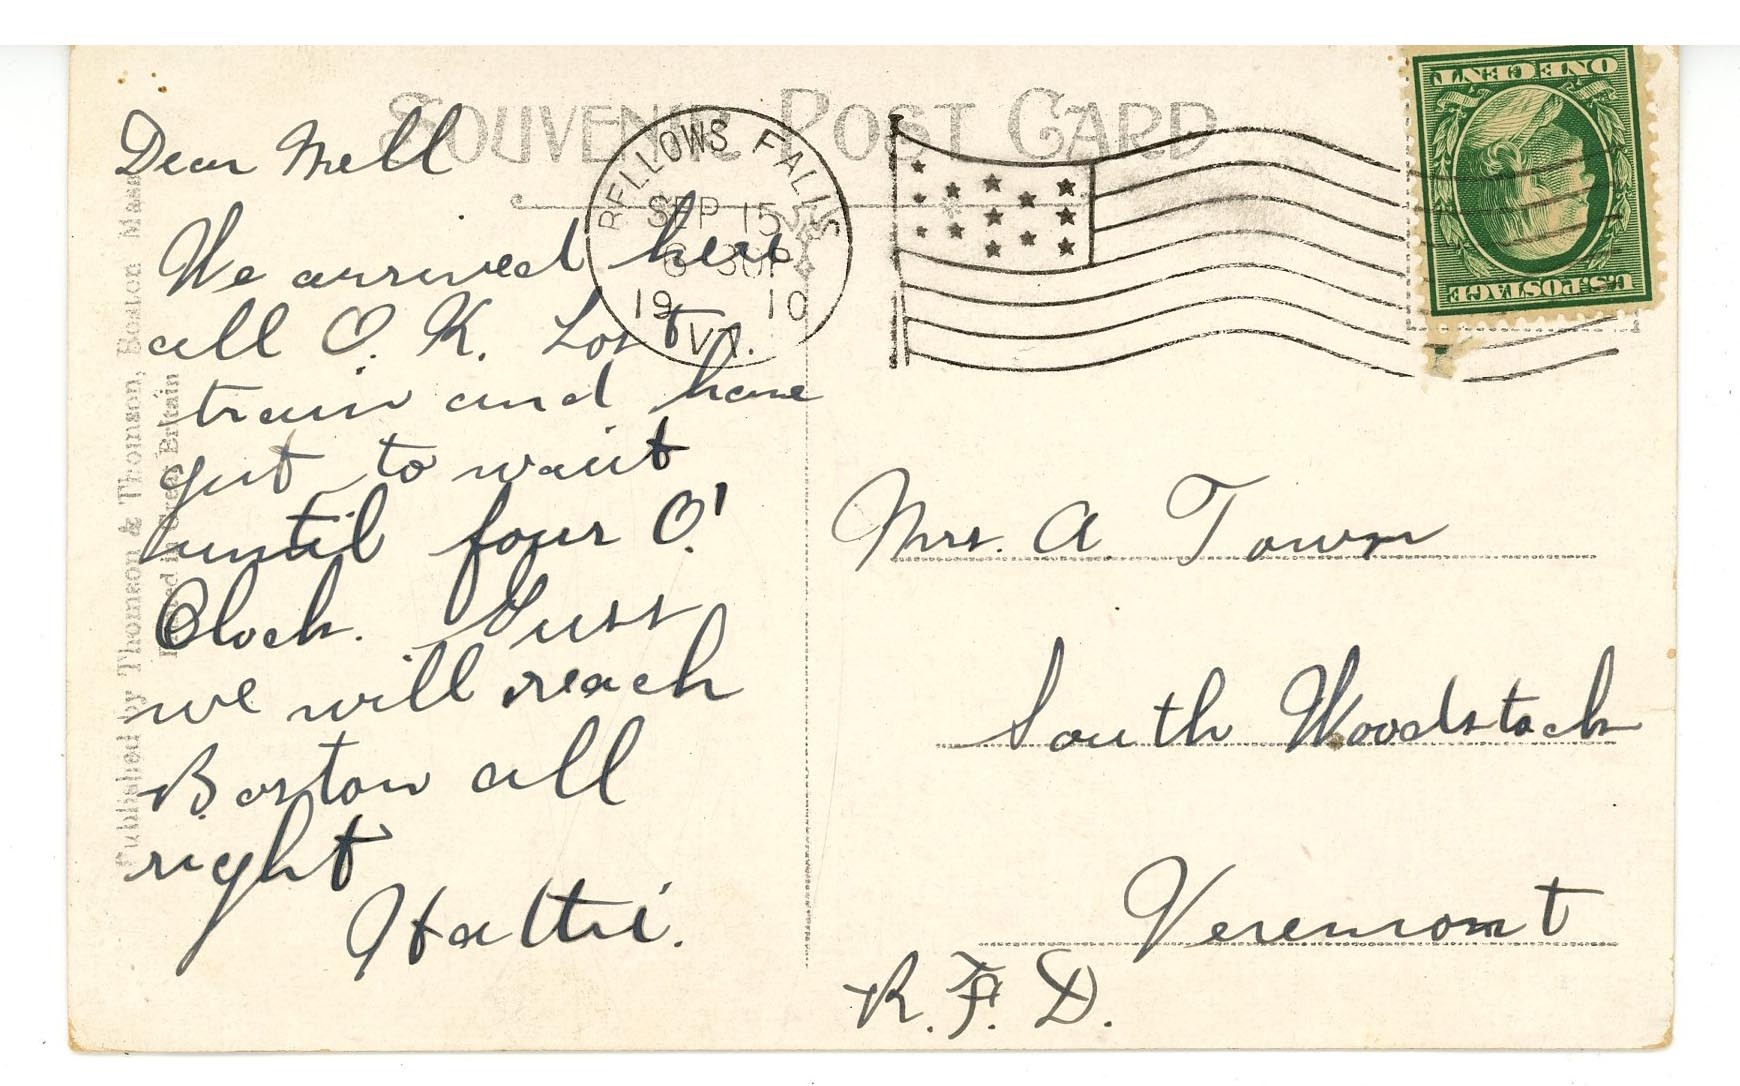 SOUVENIR POST CARD
BELLOWS FALLS
SEP 15
6 30 P
19 10
VT.
ONE CENT
U.S. POSTAGE
Published by Thomson & Thomson, Boston Mass
Printed in Great Britain
Dear Mell
We arrived here
all O. K. Lost
train and have
gut to wait
until four O'
Clock. Guss
we will reach
Boston all
right
Hatti.
Mrs. A Town
South Woodstock
Veremont
R. F. D.